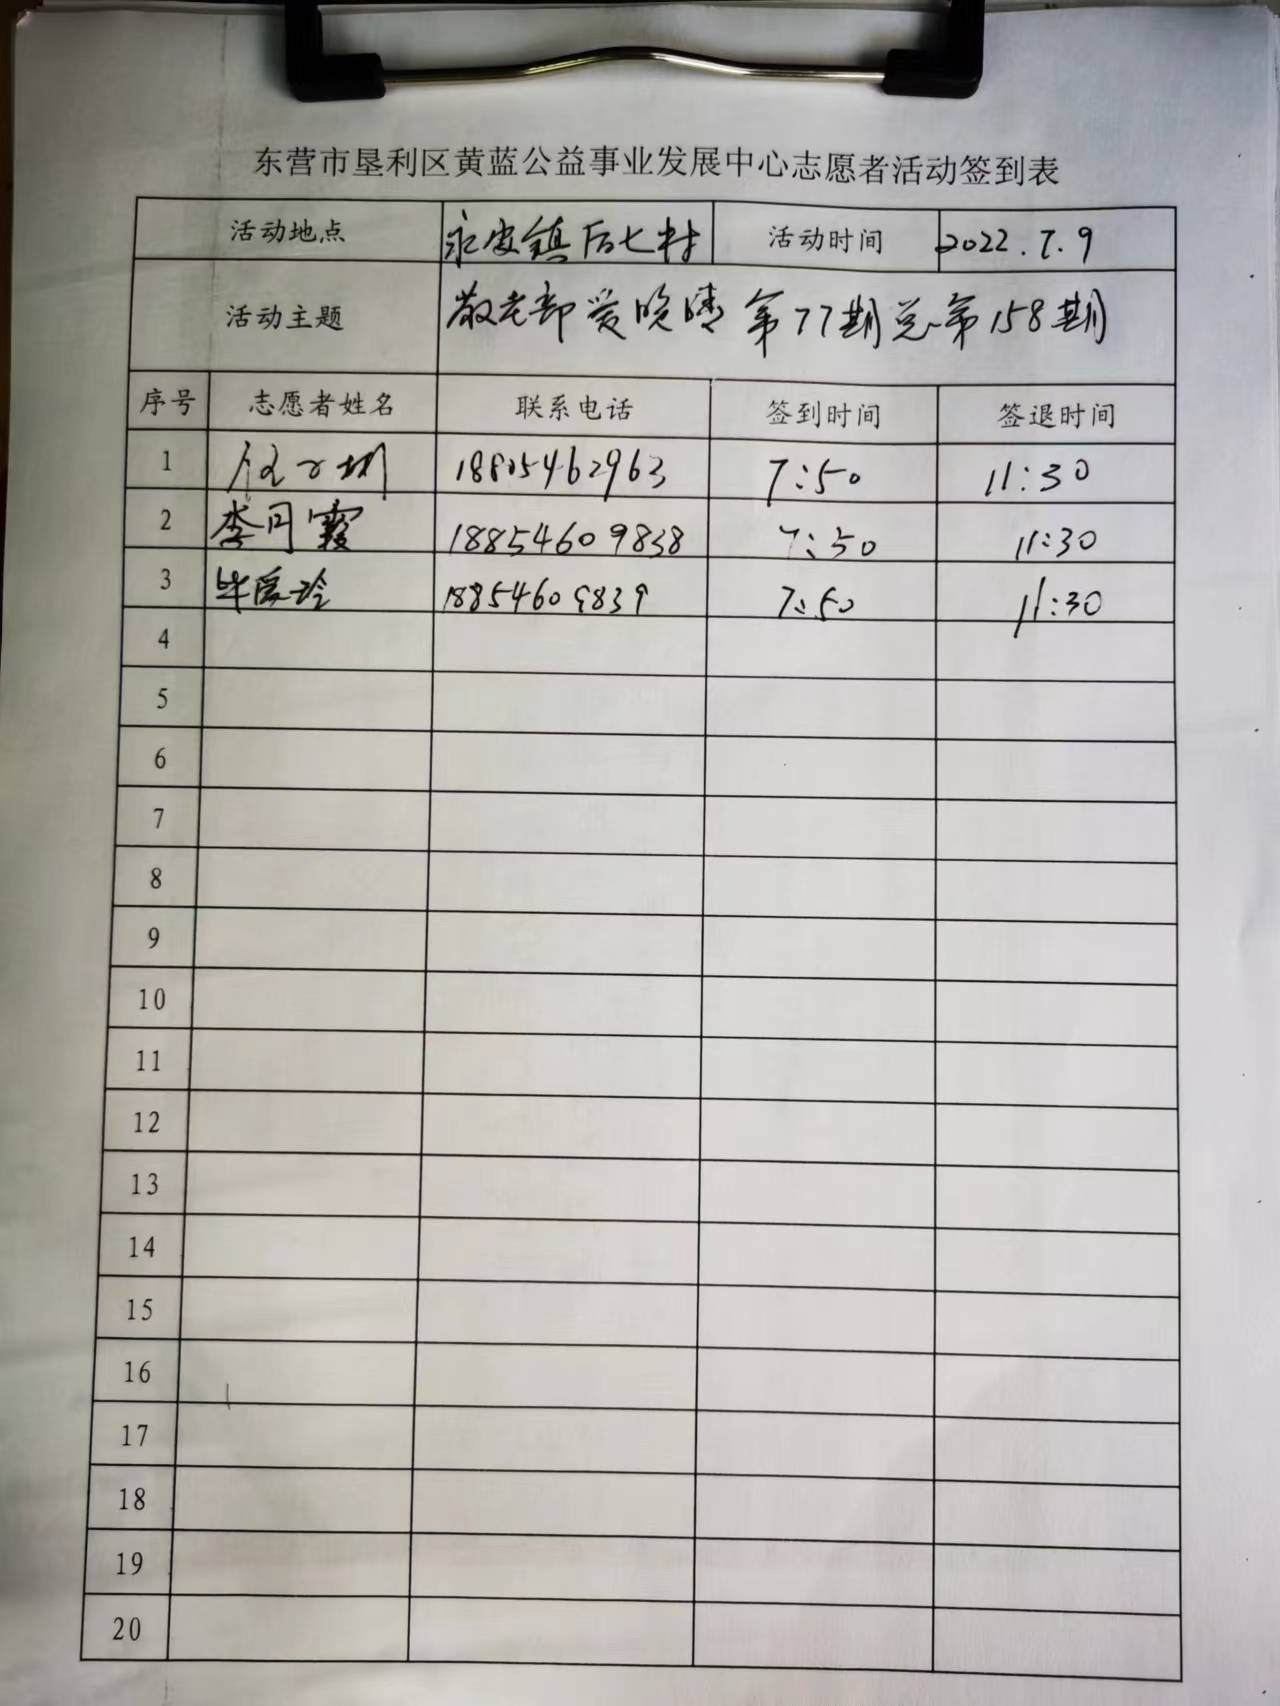 东营市垦利区黄蓝公益事业发展中心志愿者活动签到表
活动地点 永安镇后七村 活动时间 2022.7.9
活动主题 敬老部爱晚晴第77期总第158期
序号 志愿者姓名 联系电话 签到时间 签退时间
1 18805462963 7:50 11:30
2 李月霞 18854609838 7:50 11:30
3 毕爱玲 18854609839 7:50 11:30
4
5
6
7
8
9
10
11
12
13
14
15
16
17
18
19
20